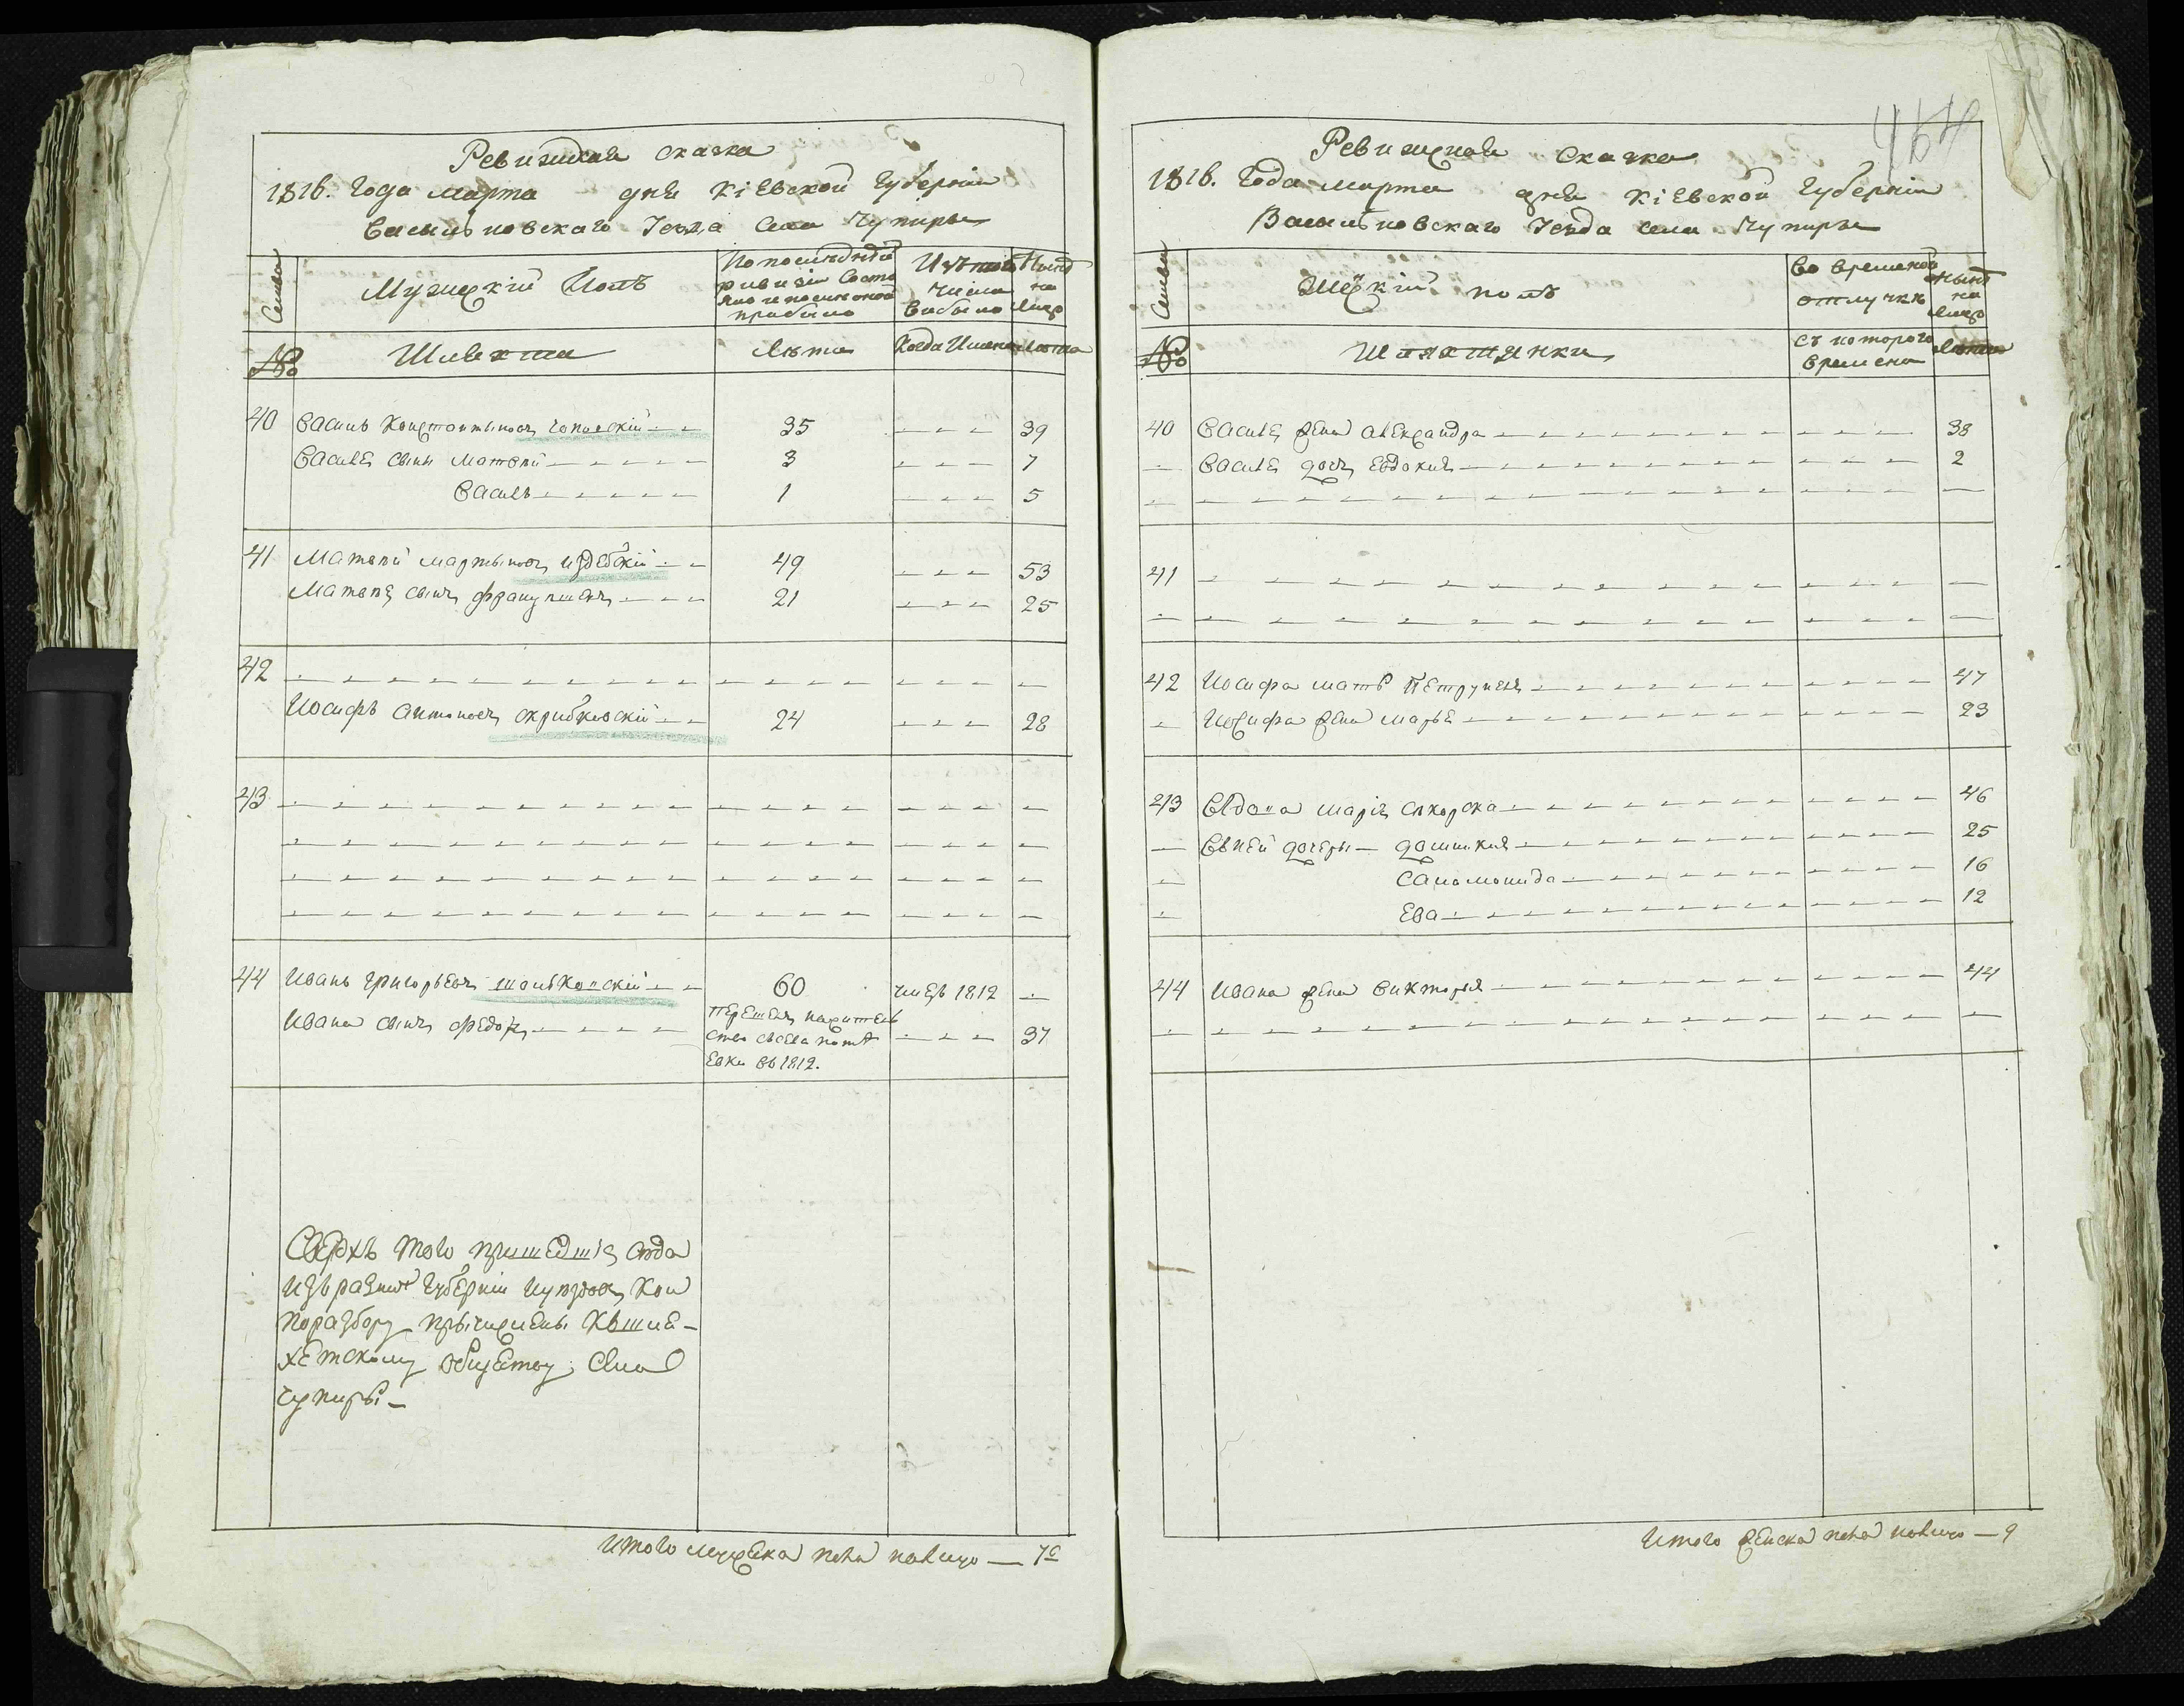 Ревижская сказка
1816. Года марта дня Кіевской Губерніи
Васильковскаго Уезда Села Чупиры
Семьи
Мужескій Полъ
По последней ревизіи Состояло и после оной прибыло
Изъ того числа выбыло
Ныне на лицо
№
Шляхта
Лета
Когда Именно
Лета
40 Василь Константиновъ Чоповскій 35 — — — 39
Василя сыны Матвей 3 — — — 7
Василь 1 — — — 5
41 Матвей Мартыновъ Издебскій 49 — — — 53
Матвея сынъ Францишекъ 21 — — — 25
42 — — —
Иосифъ Антоновъ Скрибковскій 24 — — — 28
43 — — —
— — —
— — —
— — —
44 Иванъ Григорьевъ 60 умеръ 1812 —
Ивана сынъ Федоръ — — — 37
въ 1812.
Сверхъ того пришедшія сюда
изъ разныхъ Губерній и уездовъ, кои
по разбору причислены къ шля-
хетскому обществу села
Чупиры —
Итого мужеска пола налицо — 7
Ревижская Сказка
1816. Года марта дня Кіевской Губерніи
Васильковскаго Уезда села Чупиры
Семьи
Женскій полъ
Во временной отлучке
Ныне на лицо
№
Шляхтянки
Съ которого времени
Лета
40 Василя жена Александра — — — 38
— Василя дочь Евдокия — — — 2
— — —
41 — — —
— — —
42 Иосифа мать Петрунеля — — — 47
— Иосифа жена Марья — — — 23
43 Вдова Марія — — — 46
— В ней дочери — Домникия — — — 25
— Саломонида — — — 16
— Ева — — — 12
44 Ивана жена Виктория — — — 44
— — —
Итого женска пола налицо — 9